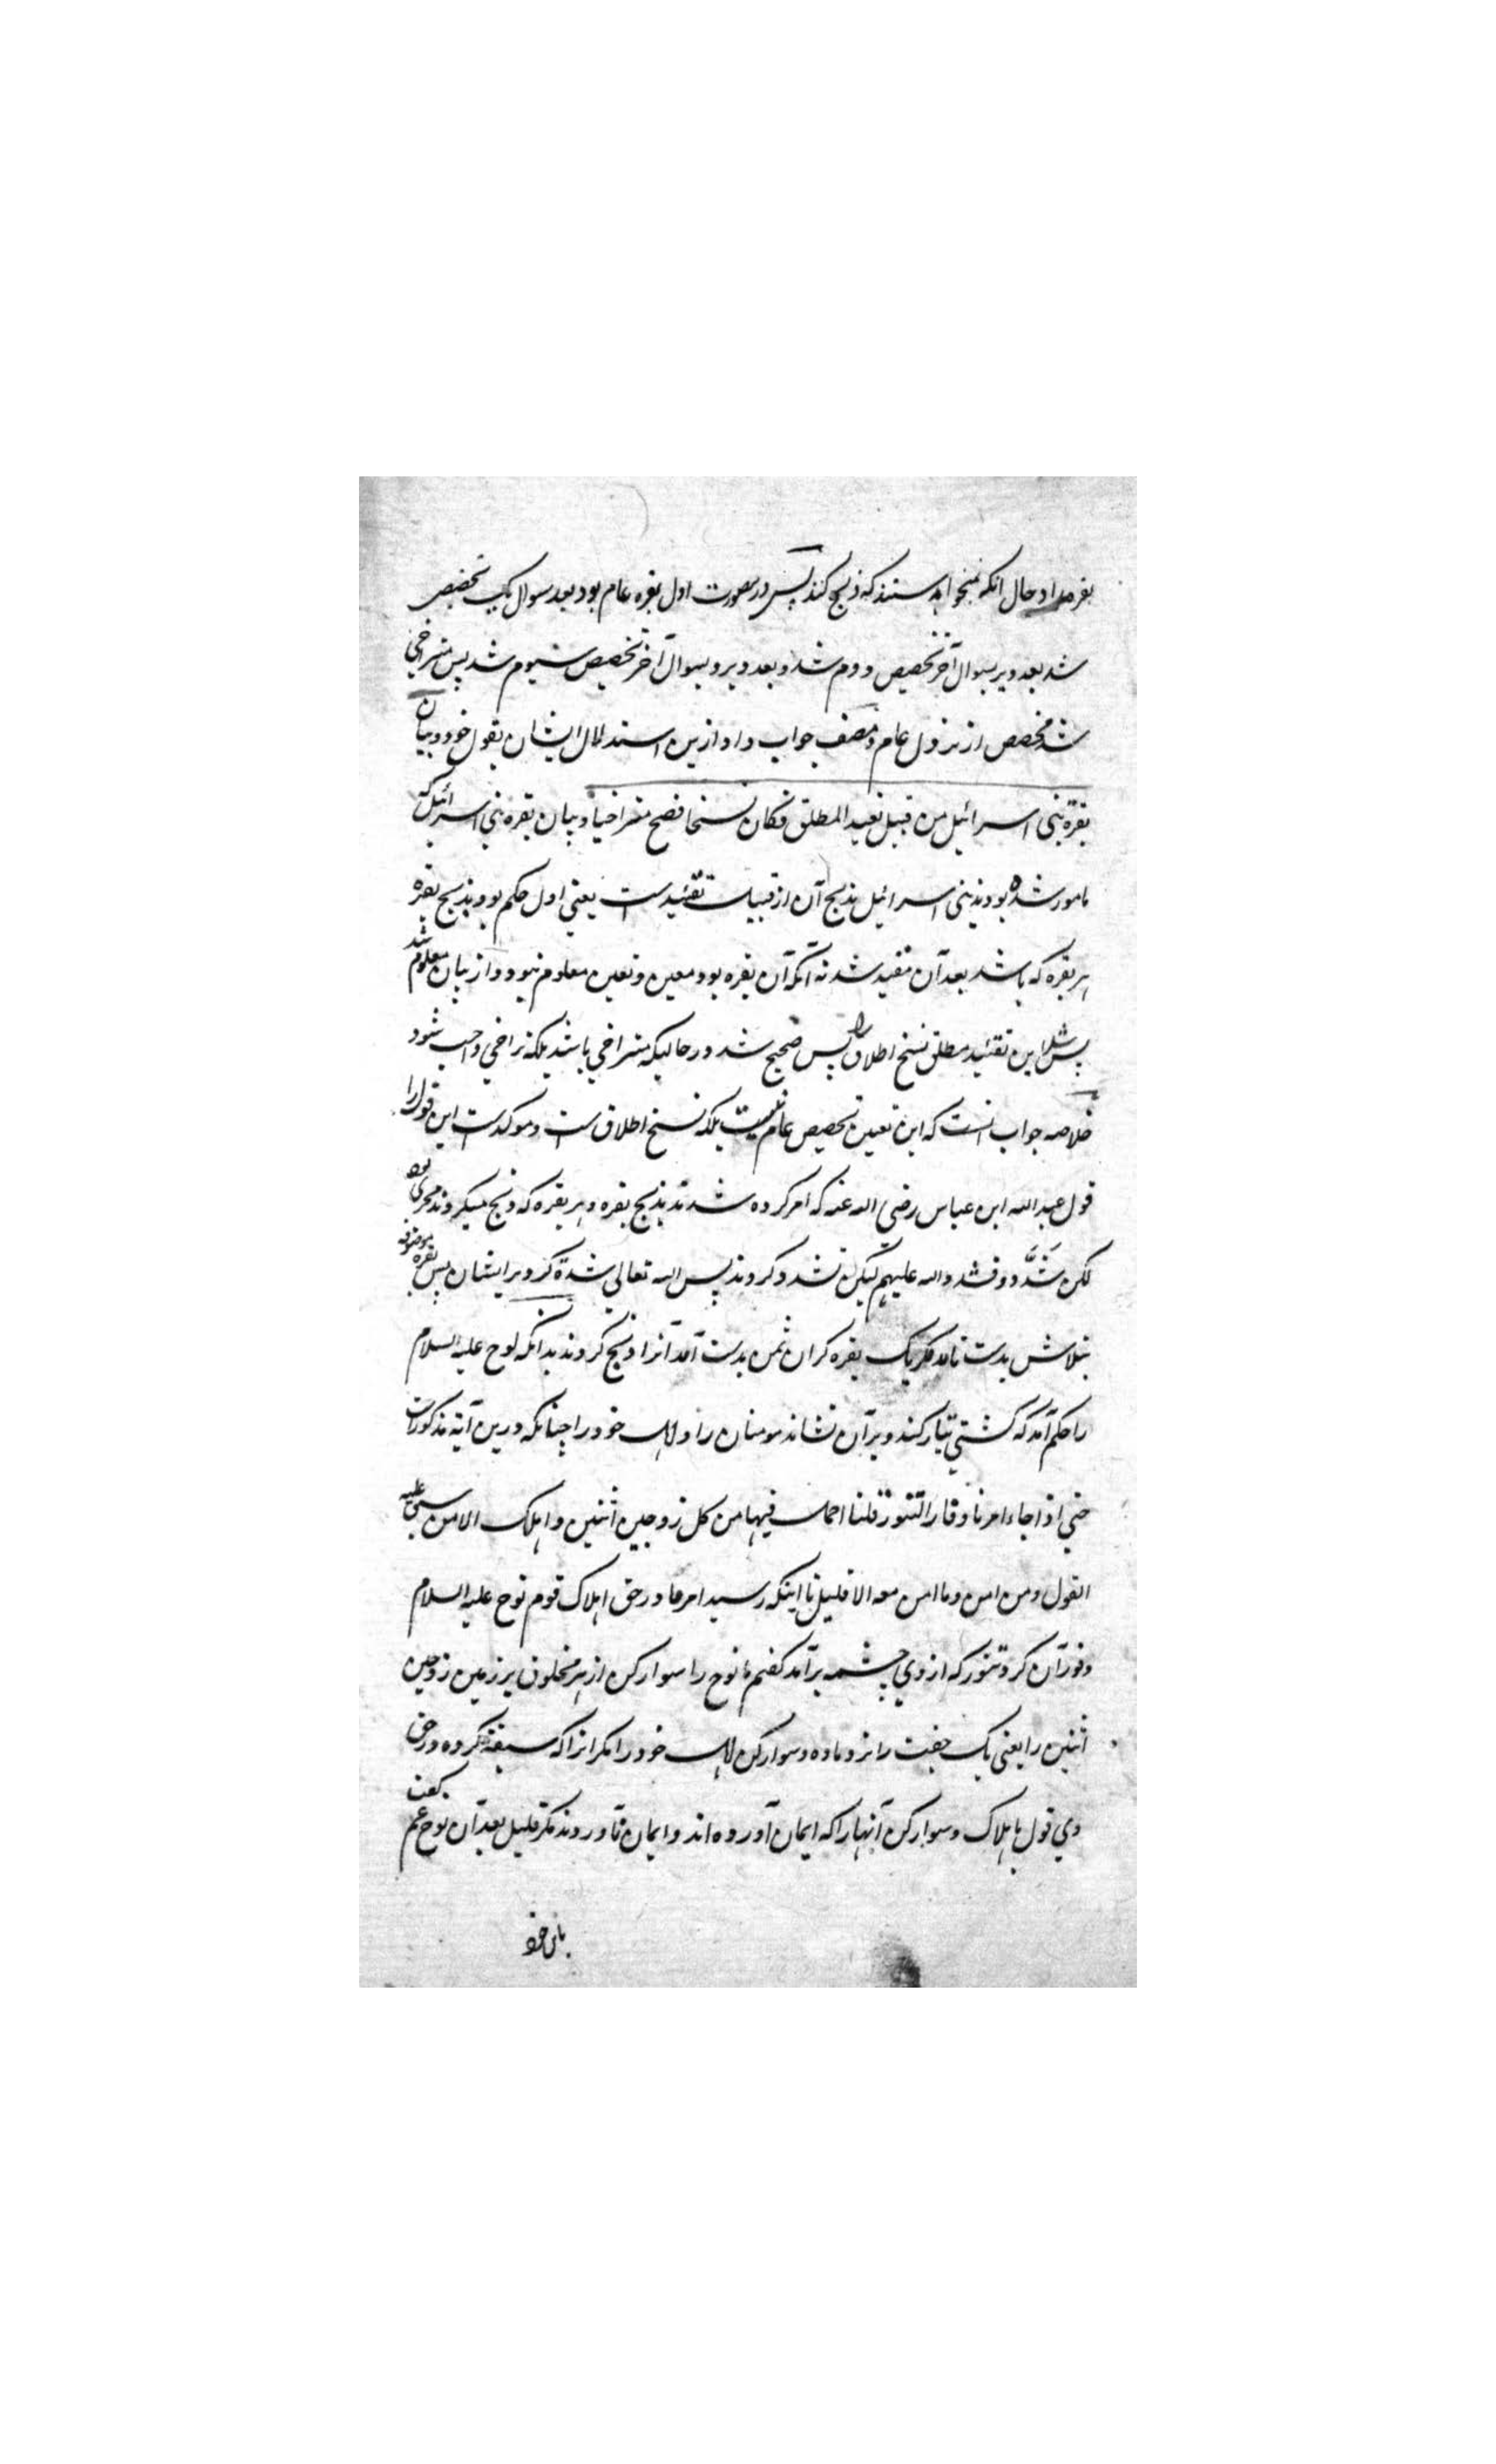 بقره را و حال آنکه نمیخواستند که ذبح کنند پس در صورت اول بقره عام بود بعد سوال یک تخصیص
شد بعد دیر بسوال آخر تخصیص دوم شد و بعد دیر و بسوال آخر تخصیص سیوم شد پس متراخی
شد مخصص از نزول عام و مصنف جواب داد ازین استدلال ایشان بقول خود و بیان
بقرة بنی اسرائیل من قبیل تقیید المطلق فکان نسخا فصح متراخیا و بیان بقره بنی اسرائیل که
مامور شده بودند بنی اسرائیل بذبح آن از قبیل تقئید است یعنی اول حکم بود بذبح بقره
هر بقره که باشد بعد آن مقید شد نه آنکه آن بقره بود معین و تعین معلوم نبود و از بیان معلوم شد
پس شد این تقئید مطلق نسخ اطلاق را پس صحیح شد در حالیکه متراخی باشد بلکه تراخی واجب شود
خلاصه جواب آنست که این تعین تخصیص عام نیست بلکه نسخ اطلاق ست و موکد ست این قول را
قول عبد الله ابن عباس رضی الله عنه که امر کرده شدند بذبح بقره و هر بقره که ذبح میکردند مجزی بود
لکن شدّدوا فشدد الله علیهم لیکن تشدد کردند پس الله تعالی شدة کرد بر ایشان پس بقره موصوفه
بتلاش بدست نامد مگر یک بقره گران ثمن بدست آمد آنرا ذبح کردند بدانکه نوح علیه السلام
را حکم آمد که کشتی تیار کند و بر آن نشاند مومنان را و اهل خود را چنانکه درین آیة مذکورست
حتی اذا جاء امرنا و فار التنور قلنا احمل فیها من کل زوجین اثنین و اهلک الا من سبق علیه
القول و من امن و ما امن معه الا قلیل تا اینکه رسید امر ما در حق اهلاک قوم نوح علیه السلام
و فوران کرد تنور که از وی چشمه برآمد گفتم ما نوح را سوار کن از هر مخلوق بر زمین زوجین
اثنین را یعنی یک جفت را نر و ماده و سوار کن اهل خود را مگر انرا که سبقة کرده در حق
وی قول باهلاک و سوار کن آنها را که ایمان آورده اند و ایمان ناوردند مگر قلیل بعد آن نوح عم گفت